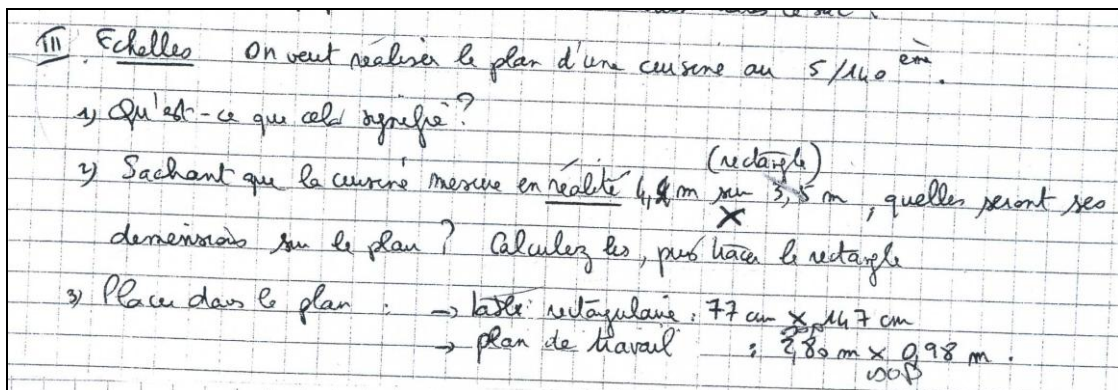 III. Echelles On veut réaliser le plan d'une cuisine au 5/140 ème.
1) Qu'est-ce que cela signifie?
(rectangle)
2) Sachant que la cuisine mesure en réalité 4,2 m sur 3,5 m, quelles seront ses
X
dimensions sur le plan? Calculez les, puis tracer le rectangle
3) Placer dans le plan : → table rectangulaire : 77 cm X 147 cm
→ plan de travail : 2,80 m x 0,98 m.